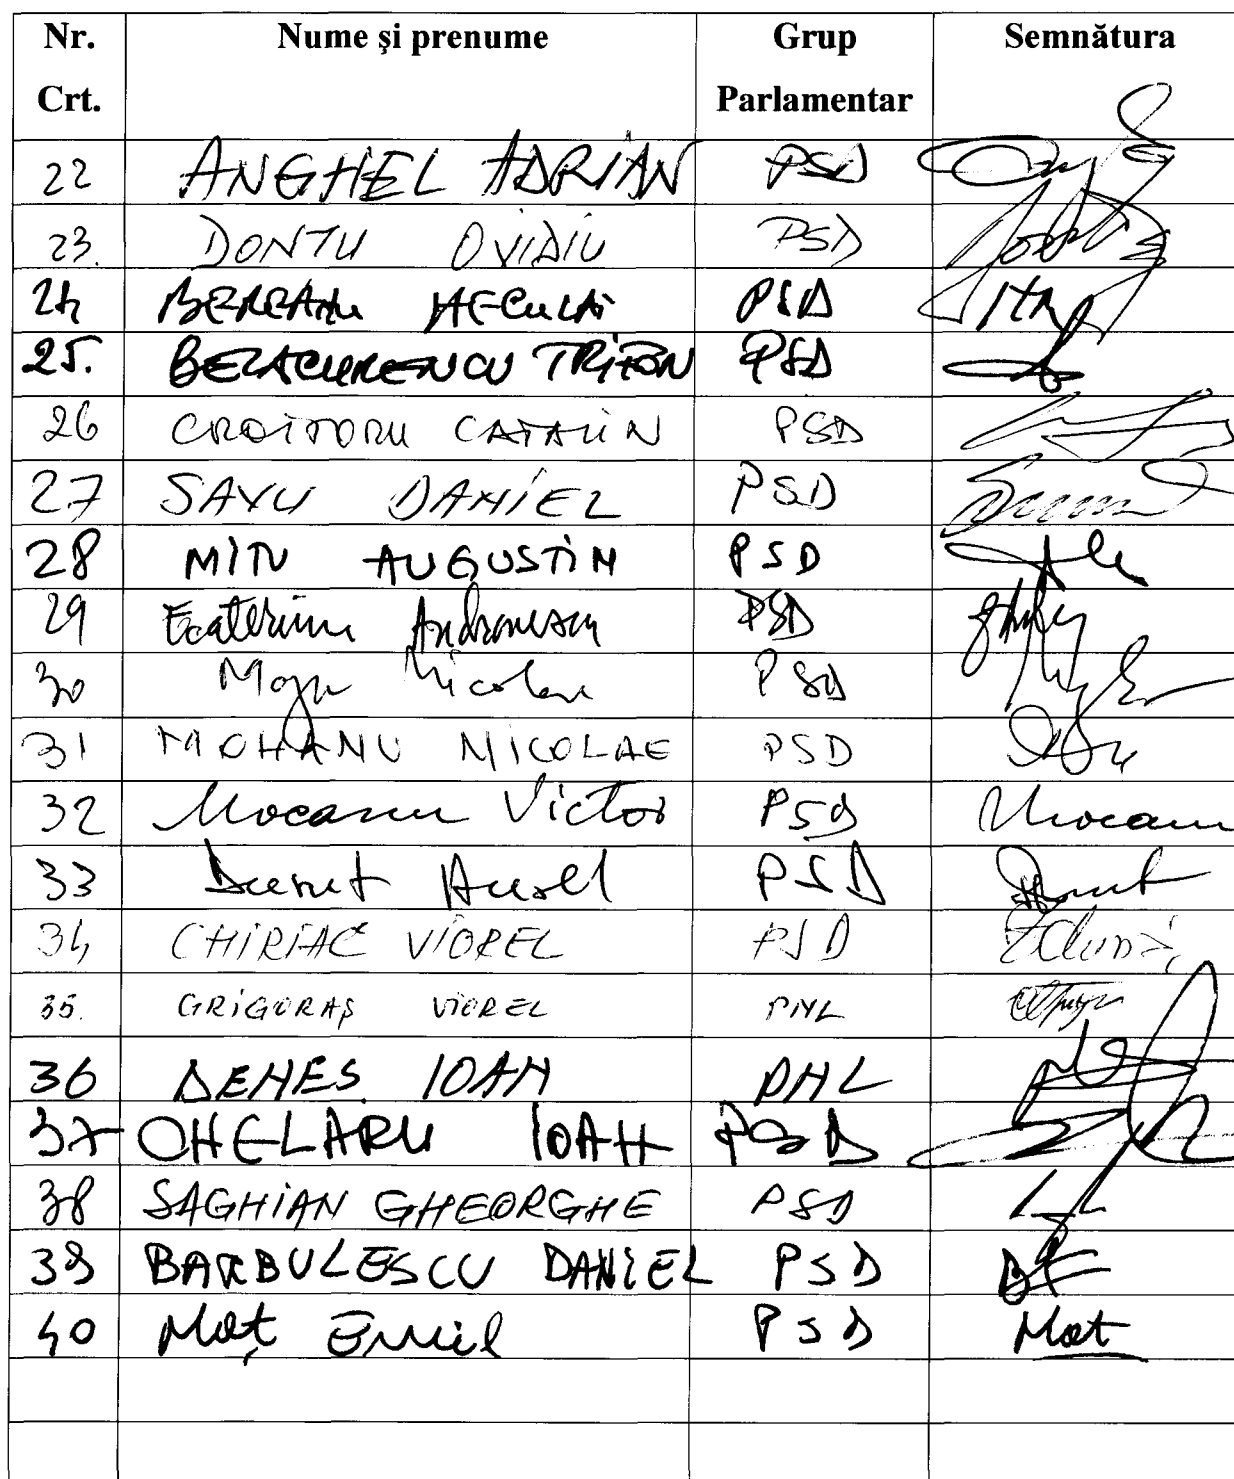 Nr. Crt. Nume şi prenume Grup Parlamentar Semnătura
22 ANGHEL ADRIAN PSD
23. DONTU OVIDIU PSD
24 PSD
25. BEZACURENCU TRIFON PSD
26 CROITORU CATALIN PSD
27 SAVU DANIEL PSD
28 MITU AUGUSTIN PSD
29 Ecaterina Andronescu PSD
30 Nicolae PSD
31 MOHANU NICOLAE PSD
32 Mocanu Victor PSD Mocanu
33 Aurel PSD
34 CHIRIAC VIOREL PSD
35. GRIGORAŞ VIOREL PNL
36 DENEŞ IOAN PNL
37 CHELARU IOAN PSD
38 SAGHIAN GHEORGHE PSD
39 BARBULESCU DANIEL PSD
40 Maţ Emil PSD Mat